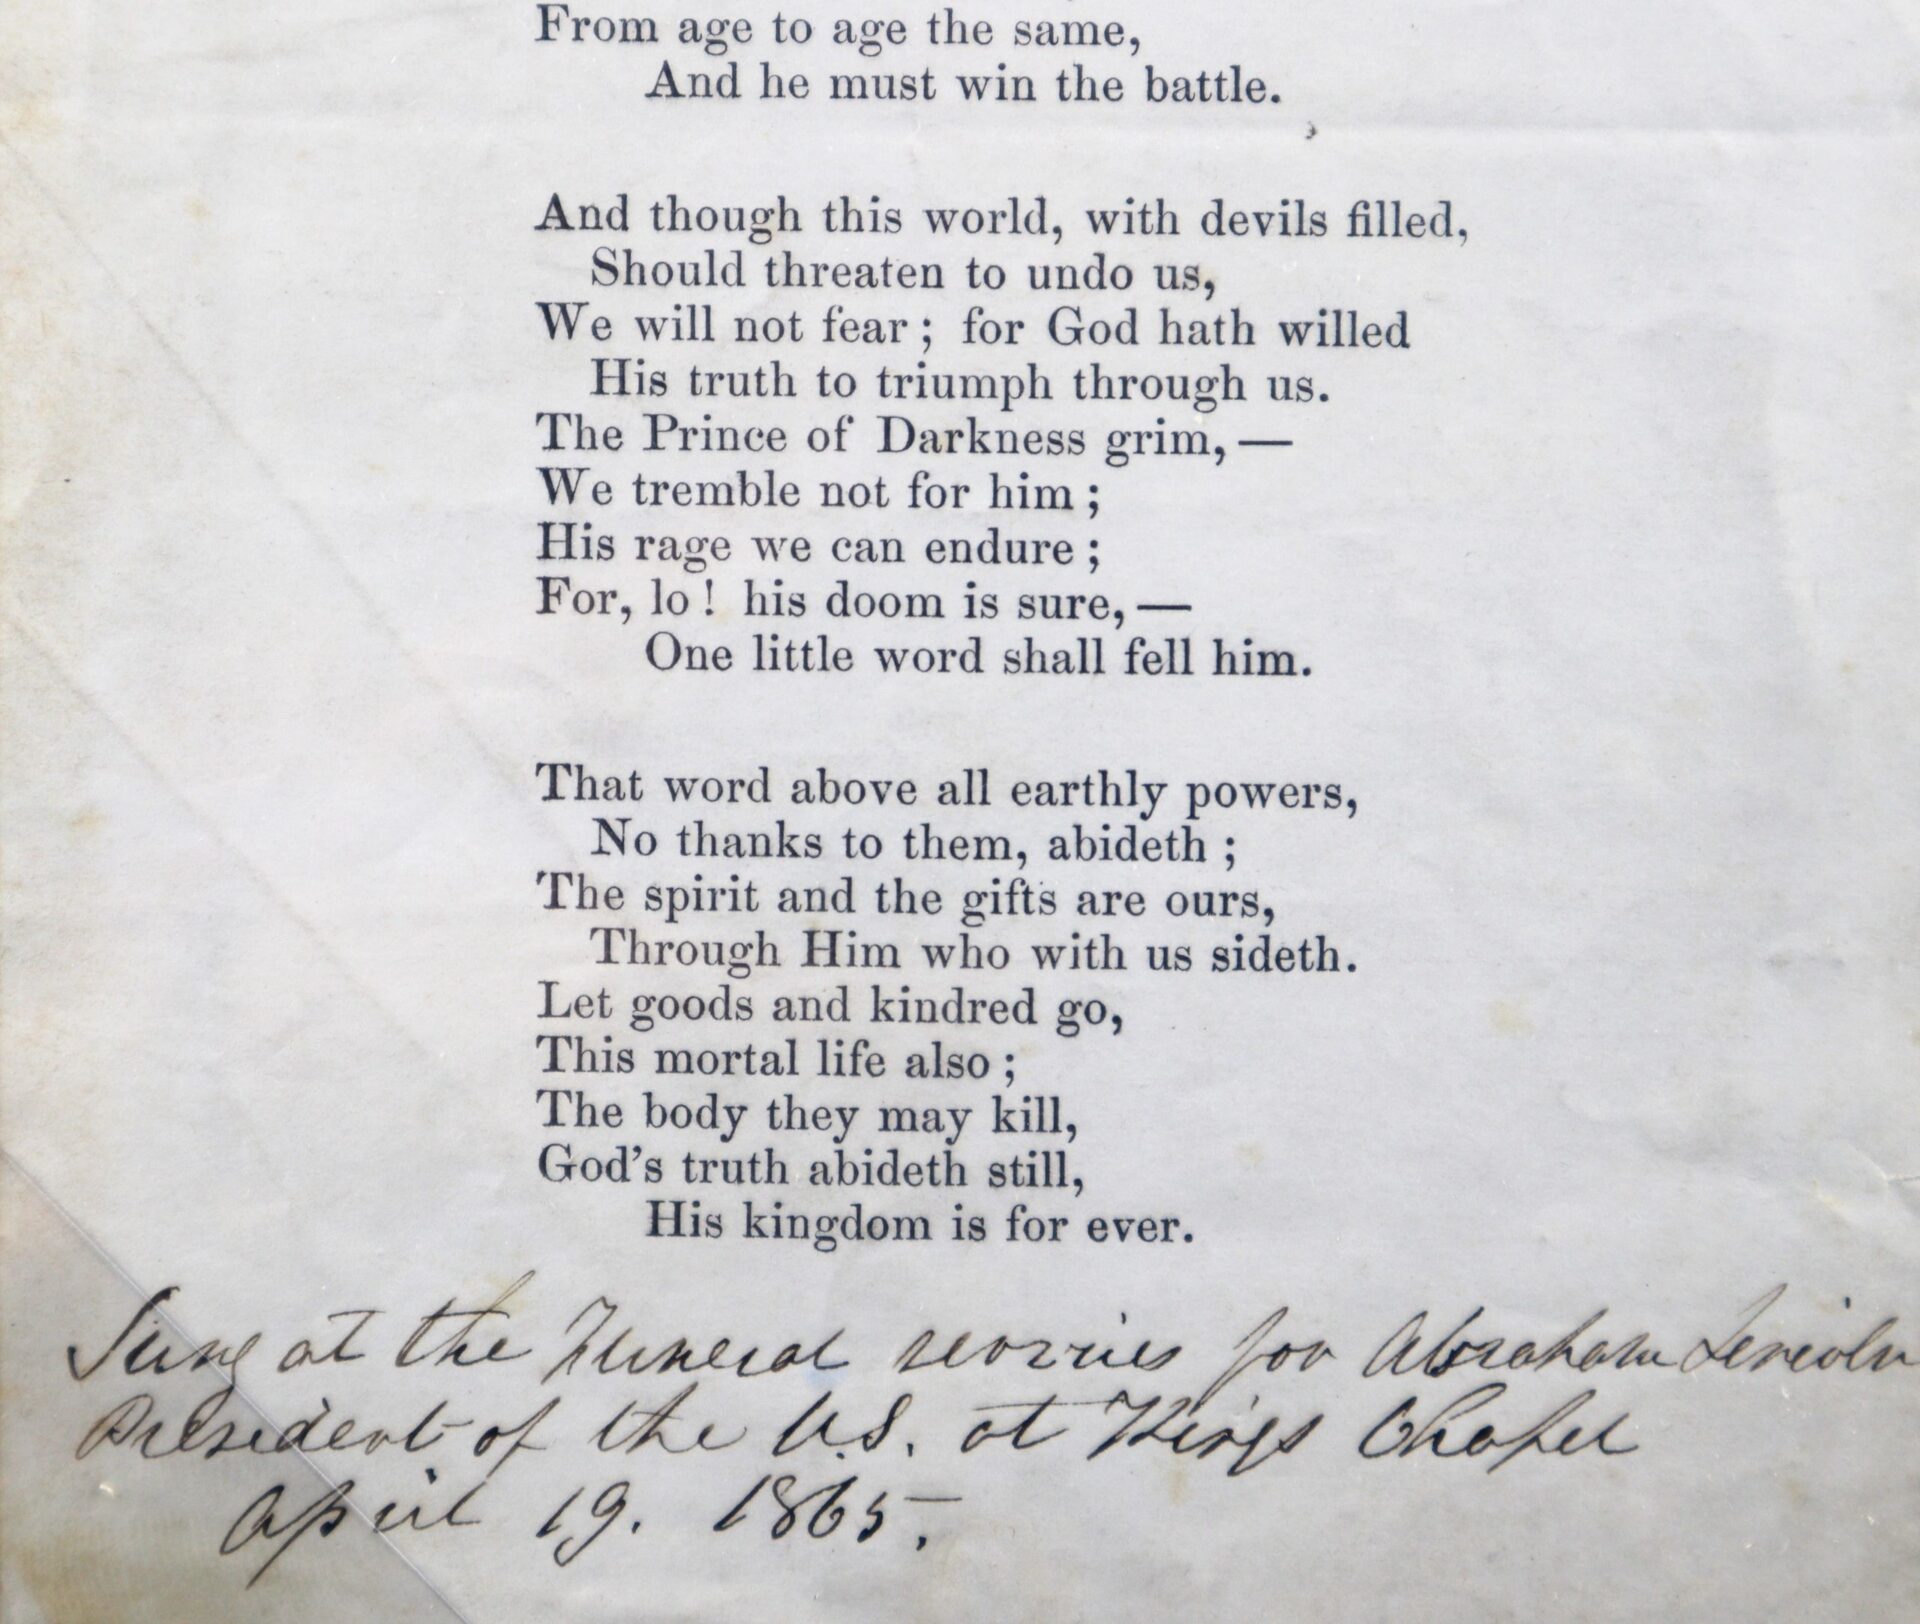 From age to age the same,
And he must win the battle.
And though this world, with devils filled,
Should threaten to undo us,
We will not fear ; for God hath willed
His truth to triumph through us.
The Prince of Darkness grim, —
We tremble not for him ;
His rage we can endure ;
For, lo ! his doom is sure, —
One little word shall fell him.
That word above all earthly powers,
No thanks to them, abideth ;
The spirit and the gifts are ours,
Through Him who with us sideth.
Let goods and kindred go,
This mortal life also ;
The body they may kill,
God's truth abideth still,
His kingdom is for ever.
Sung at the Funeral services for Abraham Lincoln
President of the U.S. at Kings Chapel
April 19. 1865.